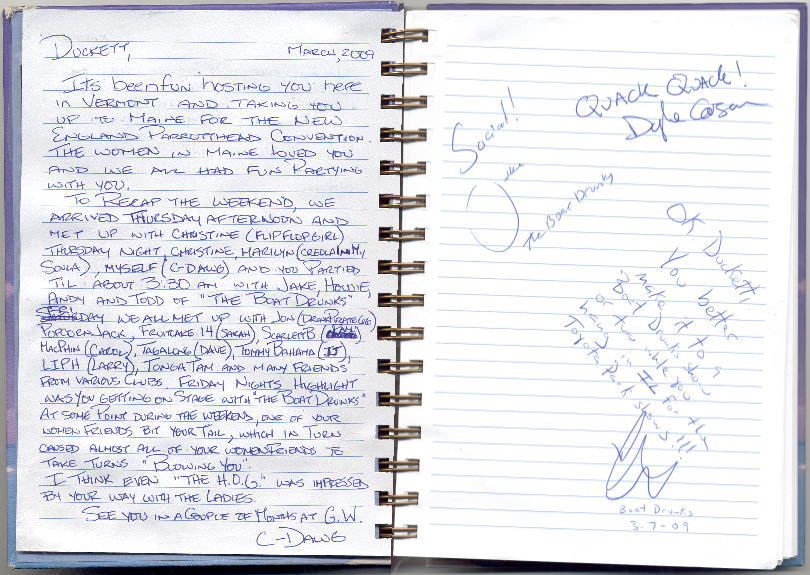 DUCKETT, MARCH, 2009
IT'S been fun hosting you here
in VERMONT AND TAKING YOU
UP TO MAINE FOR THE NEW
ENGLAND PARROTTHEAD CONVENTION.
THE WOMEN IN MAINE LOVED YOU
AND WE ALL HAD FUN PARTYING
WITH YOU.
TO RECAP THE WEEKEND, WE
ARRIVED THURSDAY AFTERNOON AND
MET UP WITH CHRISTINE (FLIPFLOPGIRL)
THURSDAY NIGHT, CHRISTINE, MARILYN (CREOLAINMY
SOULA), MYSELF (C-DAWG) AND YOU PARTIED
TIL ABOUT 3:30 AM WITH JAKE, HOWIE,
ANDY AND TODD OF "THE BOAT DRUNKS"
FRIDAY WE ALL MET UP WITH JON
POPCORNJACK, FRUITCAKE 14 (SARAH), SCARLETB
MACPHIN (CAROL), TAGALONG (DAVE), TOMMY BAHAMA (JJ),
LIPH (LARRY), TONGA TAM AND MANY FRIENDS
FROM VARIOUS CLUBS. FRIDAY NIGHTS HIGHLIGHT
WAS YOU GETTING ON STAGE WITH "THE BOAT DRUNKS"
AT SOME POINT DURING THE WEEKEND, ONE OF YOUR
WOMEN FRIENDS BIT YOUR TAIL, WHICH IN TURN
CAUSED ALMOST ALL OF YOUR WOMENFRIENDS TO
TAKE TURNS "BLOWING YOU".
I THINK EVEN "THE H.D.G." WAS IMPRESSED
BY YOUR WAY WITH THE LADIES.
SEE YOU IN A COUPLE OF MONTHS AT G.W.
C-DAWG
QUACK QUACK!
Social!
The Boat Drunks
OK, Duckett,
You better
make it to a
Boat Drunks show
or two while you
hang in IL for the
Toyota Park shows!!!
Boat Drunks
3-7-09